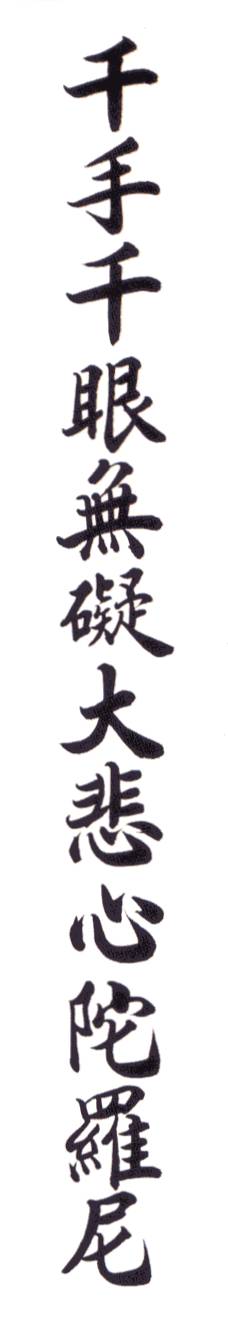 千手千眼無礙大悲心陀羅尼